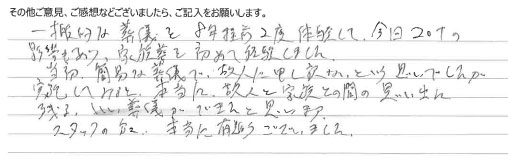 その他ご意見、ご感想などございましたら、ご記入をお願いします。
一般的な葬儀を8年程前2度体験して、今回コロナの
影響もあり、家族葬を初めて経験しました。
当初、簡易な葬儀で、故人に申し訳ない、という思いでしたが
実施してみると、本当に、故人と家族との間の思い出に
残る、いい葬儀ができたと思います。
スタッフの方々、本当に有難うございました。